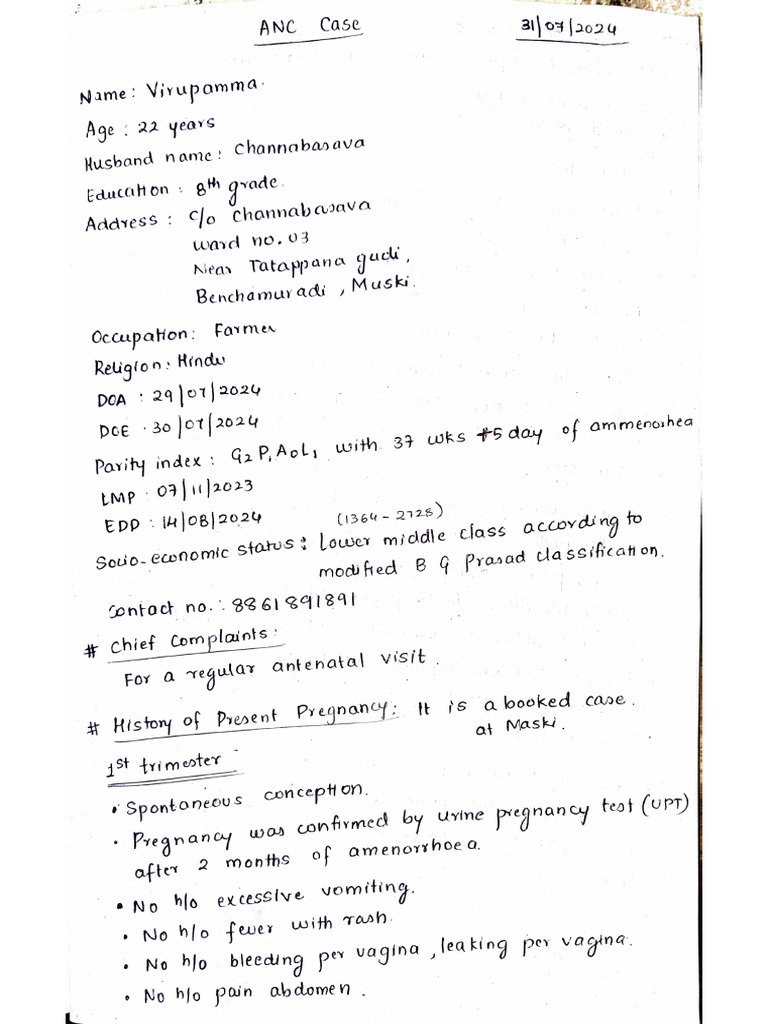 ANC Case 31/07/2024
Name: Virupamma.
Age : 22 years
Husband name: Channabasava
Education : 8th grade.
Address : C/o Channabasava
Ward no. 03
Near Tatappana gudi,
Benchamuradi , Muski.
Occupation: Farmer
Religion: Hindu
DOA : 29/07/2024
DOE . 30/07/2024
Parity index : G2 P1 A0 L1 with 37 wks +5 day of ammenorhea
LMP . 07/11/2023
EDD : 14/08/2024
(1364 - 2728)
Socio-economic status : Lower middle class according to
modified B G Prasad classification.
Contact no.: 8861891891
# Chief Complaints:
For a regular antenatal visit.
# History of Present Pregnancy: It is a booked case.
at Maski.
1st trimester
• Spontaneous conception.
• Pregnancy was confirmed by urine pregnancy test (UPT)
after 2 months of amenorrhoea.
• No h/o excessive vomiting.
• No h/o fever with rash.
• No h/o bleeding per vagina, leaking per vagina.
• No h/o pain abdomen.